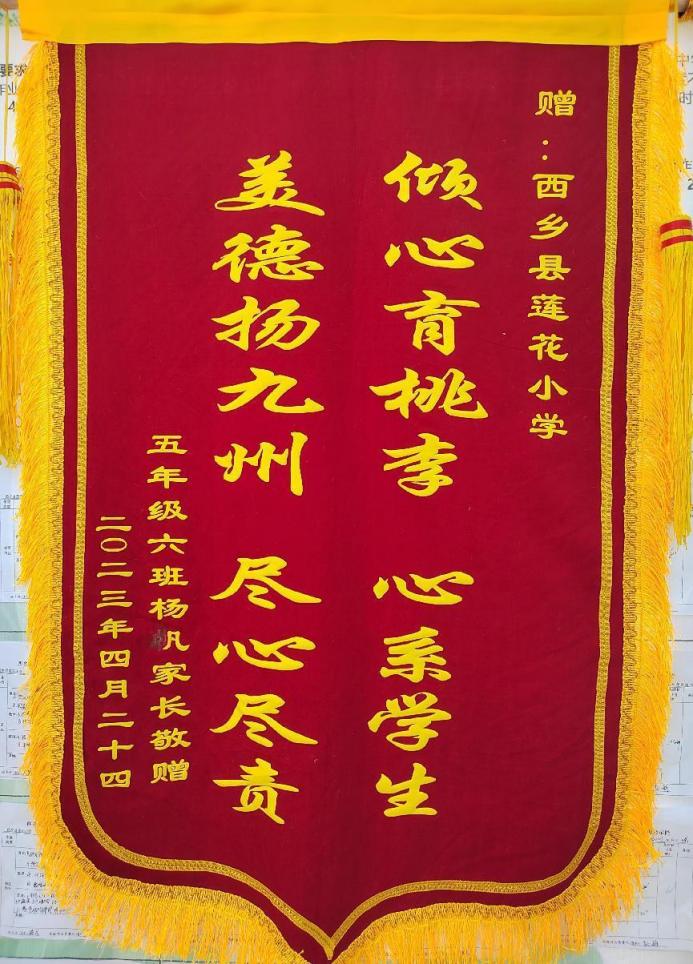 赠：西乡县莲花小学
倾心育桃李 心系学生
美德扬九州 尽心尽责
五年级六班杨凡家长敬赠
二〇二三年四月二十四